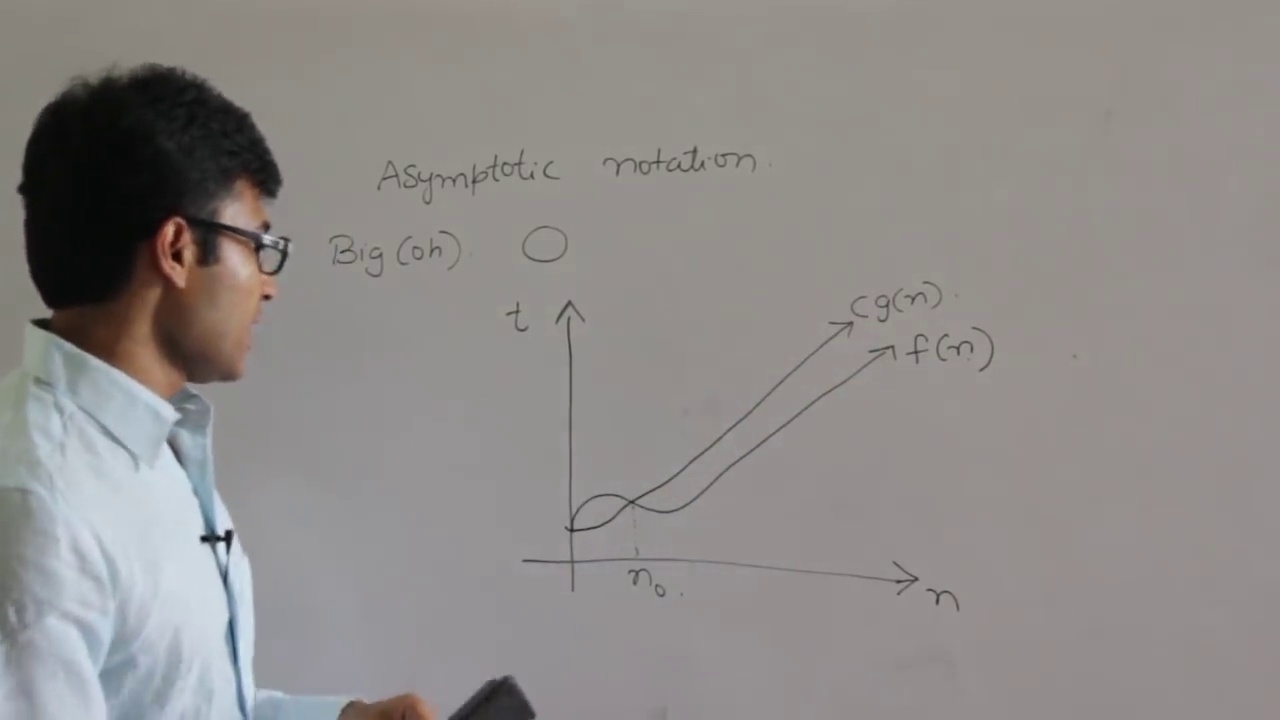 Asymptotic notation.
Big(oh). O
t
cg(n).
f(n)
n₀.
n